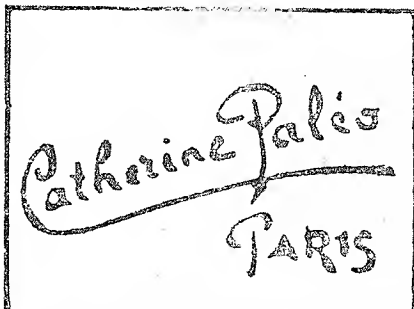 Catherine Paléo
PARIS